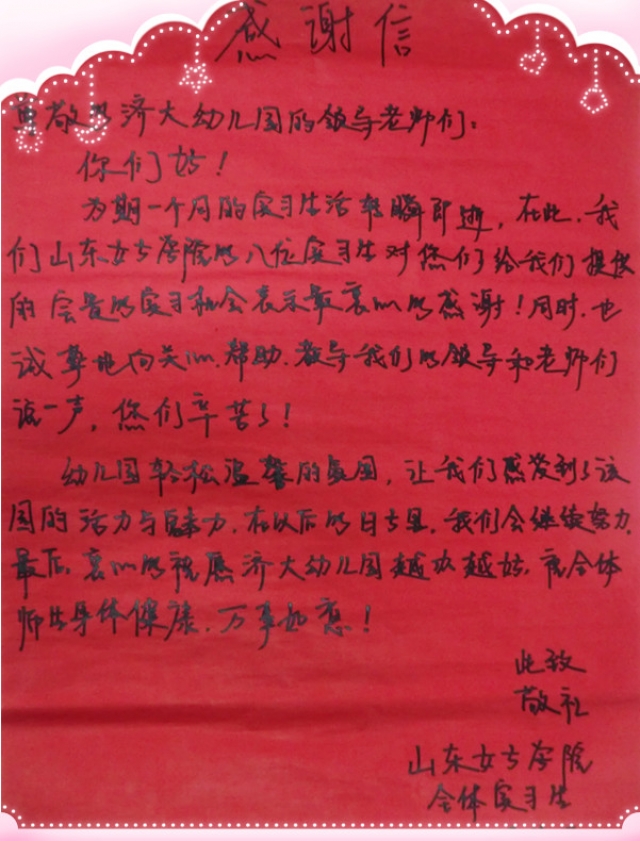 感谢信
尊敬的济大幼儿园的领导老师们：
你们好！
为期一个月的实习生活转瞬即逝，在此，我
们山东女子学院的八位实习生对您们给我们提供
的宝贵的实习机会表示最衷心的感谢！同时，也
诚挚地向关心、帮助、教导我们的领导和老师们
说一声，您们辛苦了！
幼儿园轻松温馨的氛围，让我们感受到了该
园的活力与魅力，在以后的日子里，我们会继续努力，
最后，衷心的祝愿济大幼儿园越办越好，祝全体
师生身体健康，万事如意！
此致
敬礼
山东女子学院
全体实习生